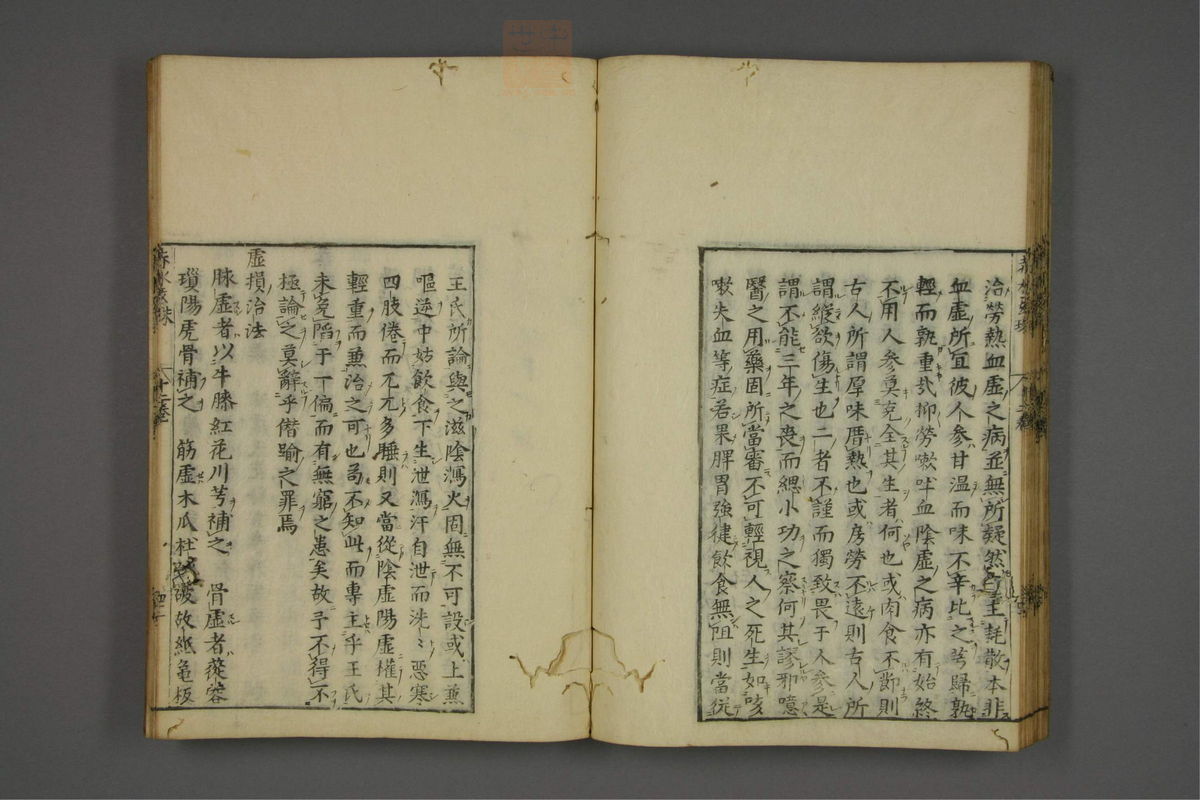 治勞熱血虛之病並無所疑然主耗散本非
血虛所宜彼人參甘温而味不辛比之芎歸孰
輕而孰重㢤抑勞嗽吐血陰虛之病亦有始終
不用人參莫克全其生者何也或肉食不斷則
古人所謂厚味厝熱也或房勞不遠則古人所
謂縱欲傷生也二者不謹而獨致畏于人參是
謂不能三年之喪而緦小功之察何其謬邪噫
醫之用藥固所當審不可輕視人之死生如咳
嗽失血等症若果脾胃強徤飲食無阻則當従
王氏所論與之滋陰瀉火固無不可設或上兼
嘔逆中妨飲食下生泄瀉汗自泄而洗〻惡寒
四肢倦而兀兀多睡則又當從陰虛陽虛權其
輕重而兼治之可也苟不知此而專主乎王氏
未免陷于一偏而有無窮之患矣故予不得不
極論之莫辭乎僭踰之罪焉
虛損治法
脉虛者以牛膝紅花川芎補之　骨虛者蓯蓉
瑣陽虎骨補之　筋虛木瓜杜破故紙龜板
赤水玄珠